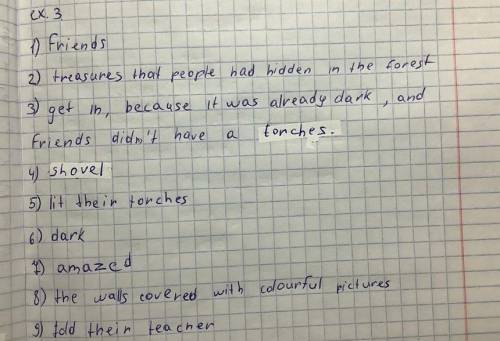 ex. 3
1) Friends
2) treasures that people had hidden in the forest
3) get in, because it was already dark, and
friends didn't have a torches.
4) shovel
5) lit their torches
6) dark
7) amazed
8) the walls covered with colourful pictures
9) told their teacher